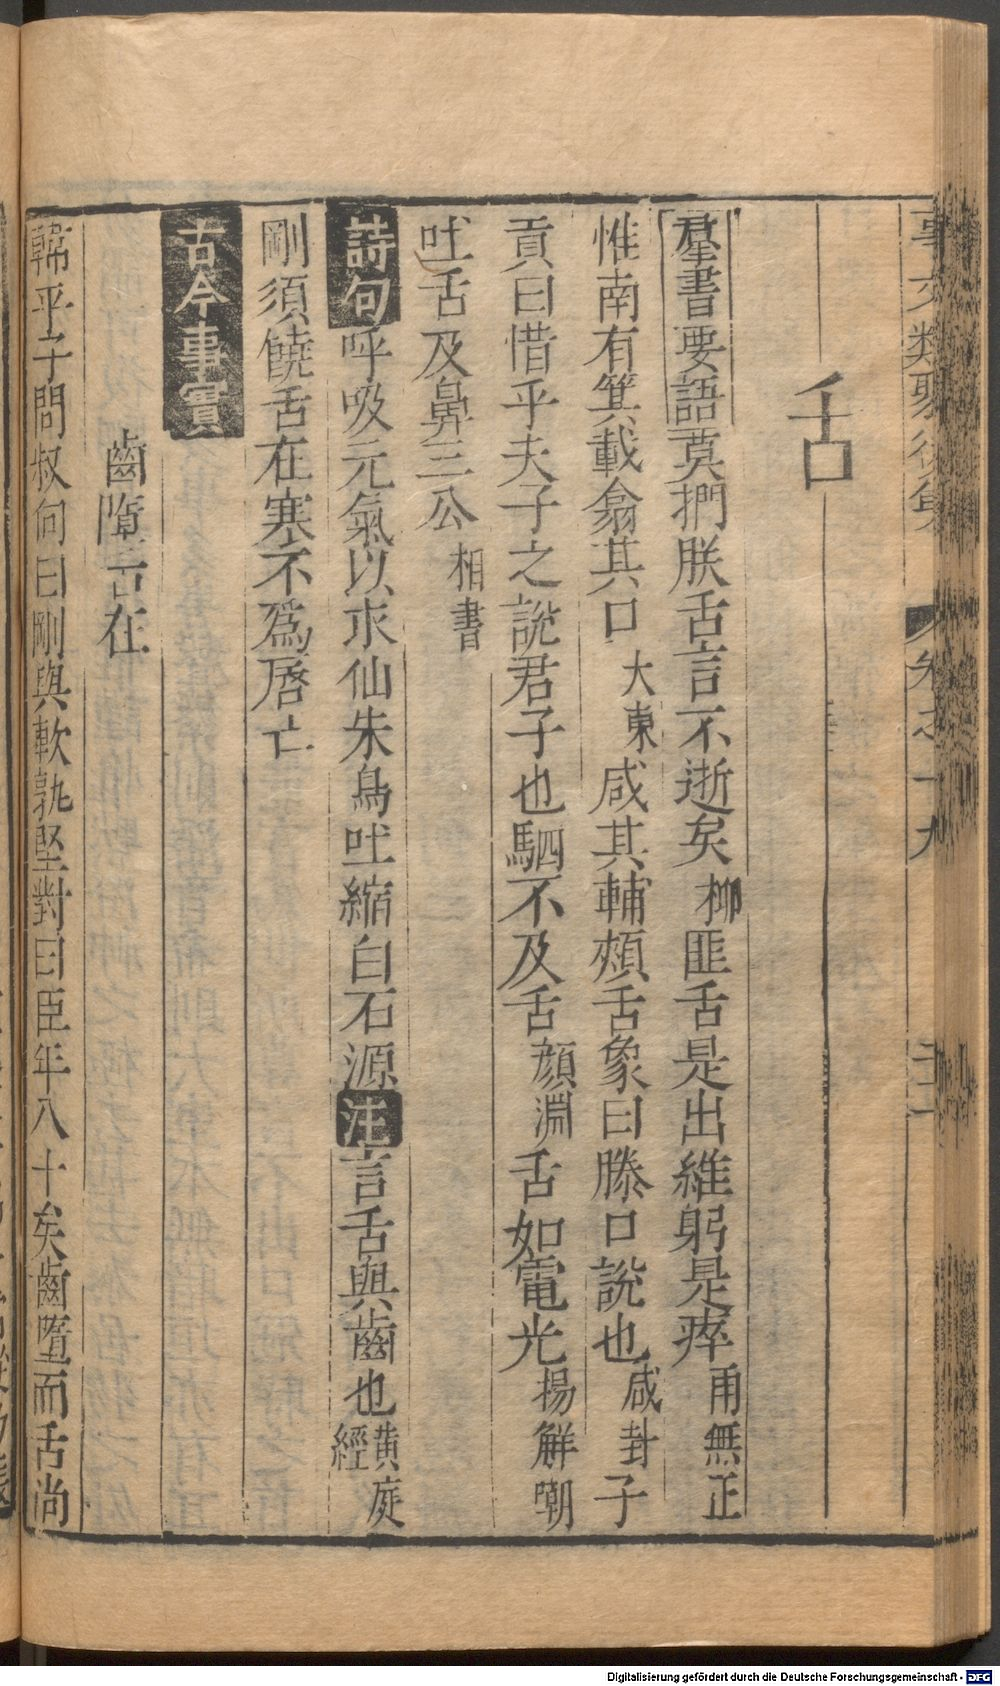 事文類聚後集 卷之十九
舌
羣書要語莫捫朕舌言不逝矣抑匪舌是出維躬是瘁雨無正
惟南有箕載翕其口大東咸其輔頰舌象曰滕口說也咸卦子
貢曰惜乎夫子之說君子也駟不及舌顏淵舌如電光揚解嘲
吐舌及鼻三公相書
詩句呼吸元氣以求仙朱鳥吐縮白石源注言舌與齒也黃庭經
剛須饒舌在寒不爲唇亡
古今事實
齒墮舌在
韓平子問叔向曰剛與軟孰堅對曰臣年八十矣齒墮而舌尚
Digitalisierung gefördert durch die Deutsche Forschungsgemeinschaft - DFG